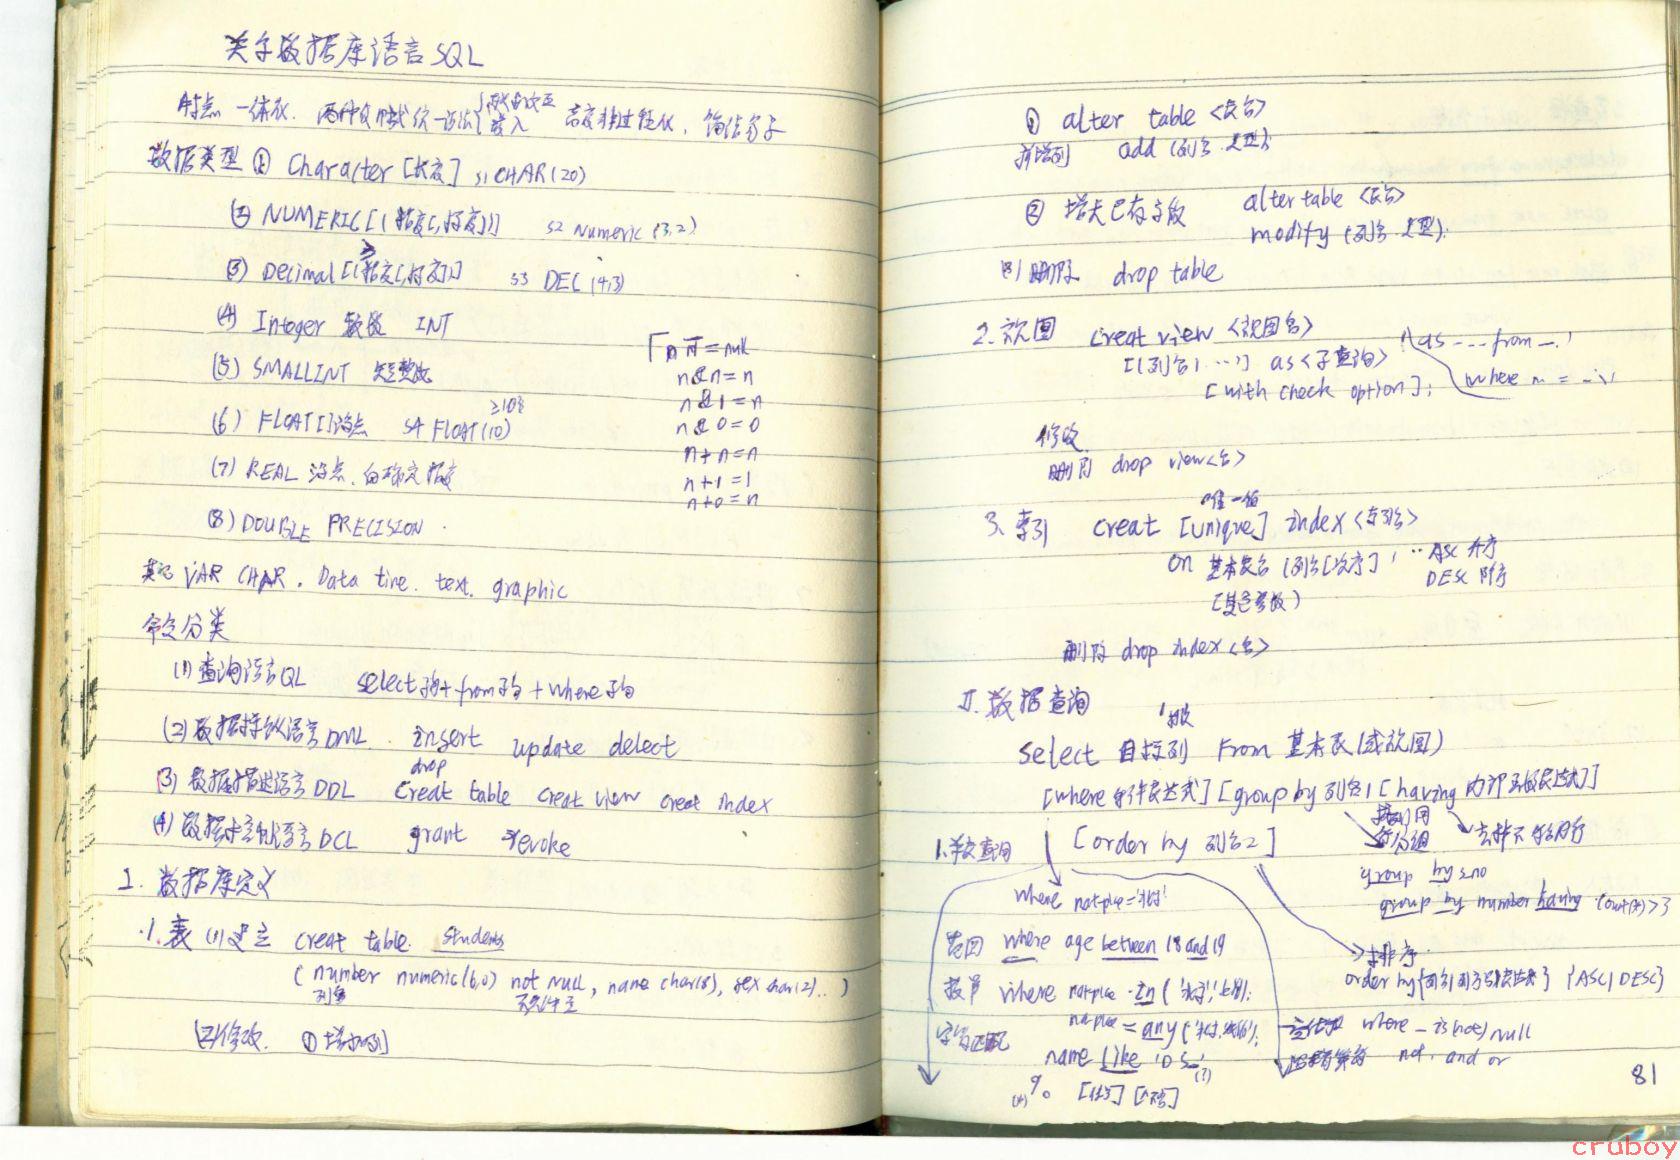 关于数据库语言SQL
特点 一体化. 两种使用方式统一语法 嵌入 高度非过程化. 简洁易学
数据类型 ① Character [长度] S1 CHAR(20)
(2) NUMERIC [(精度[,标度])] S2 Numeric (3,2)
(3) Decimal [(精度[,标度])] S3 DEC (4,3)
(4) Integer 整数 INT
(5) SMALLINT 短整数
(6) FLOAT[] 浮点 S4 FLOAT(10)
(7) REAL 浮点.
(8) DOUBLE PRECISION
n̄ = null
n & n = n
n & 1 = n
n & 0 = 0
n + n = n
n + 1 = 1
n + 0 = n
其他 VAR CHAR. Data time. text. graphic
命令分类
(1) 查询语言QL select子句+from子句+where子句
(2) 数据操纵语言DML insert update delect
drop
(3) 数据描述语言DDL creat table creat view creat index
(4) 数据控制语言DCL grant revoke
I. 数据库定义
1. 表 (1) 建立 creat table. students
( number numeric(6,0) not null, name char(8), sex char(2)... )
列名
(2) 修改. ① 增加列
① alter table <表名>
新增列 add (列名.类型)
② 增大已有字段 alter table <表名>
modify (列名.类型);
(3) 删除 drop table
2. 视图 creat view <视图名>
[(列名1, ...)] as <子查询>
[with check option];
(as --- from ---
where m = ---)
修改
删除 drop view <名>
唯一值
3. 索引 creat [unique] index <索引名>
on 基本表名 (列名[次序], ... ASC 升序
DESC 降序
删除 drop index <名>
II. 数据查询
select 目标列 From 基本表(或视图)
[where 条件表达式] [group by 列名1 [having 内部函数表达式]]
分组 去掉不符合的行
1. 简单查询 [order by 列名2]
group by sno
where natplce='北京'
group by number having count(*)>3
范围 where age between 18 and 19
排序
order by {列名|列序号|表达式} {ASC|DESC}
where natplce in ('北京','上海');
natplce = any ('北京',
字符匹配 name like 'DS_'
(?)
(*) % [任多] [不含]
空值 where _ is (not) null
not. and or
81
cruboy